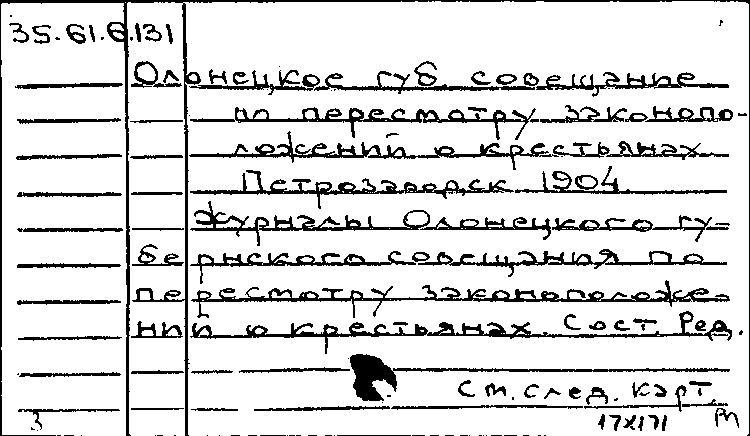 35.61.6.131
Олонецкое губ. совещание
по пересмотру законопо-
ложений о крестьянах
Петрозаводск 1904
Журналы Олонецкого гу-
бернского совещания по
пересмотру законоположе-
ний о крестьянах. Сост. Ред.
См. след. карт.
3 17X171